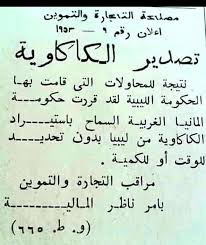 مصلحة التجارة والتموين
اعلان رقم ٩ - ١٩٥٣
تصدير الكاكاوية
نتيجة للمحاولات التى قامت بها
الحكومة الليبية لقد قررت حكومة
المانيا الغربية السماح باستيراد
الكاكاوية من ليبيا بدون تحديد
للوقت أو للكمية .
مراقب التجارة والتموين
بامر ناظر المالية
(و. ط. ٦٦٥)